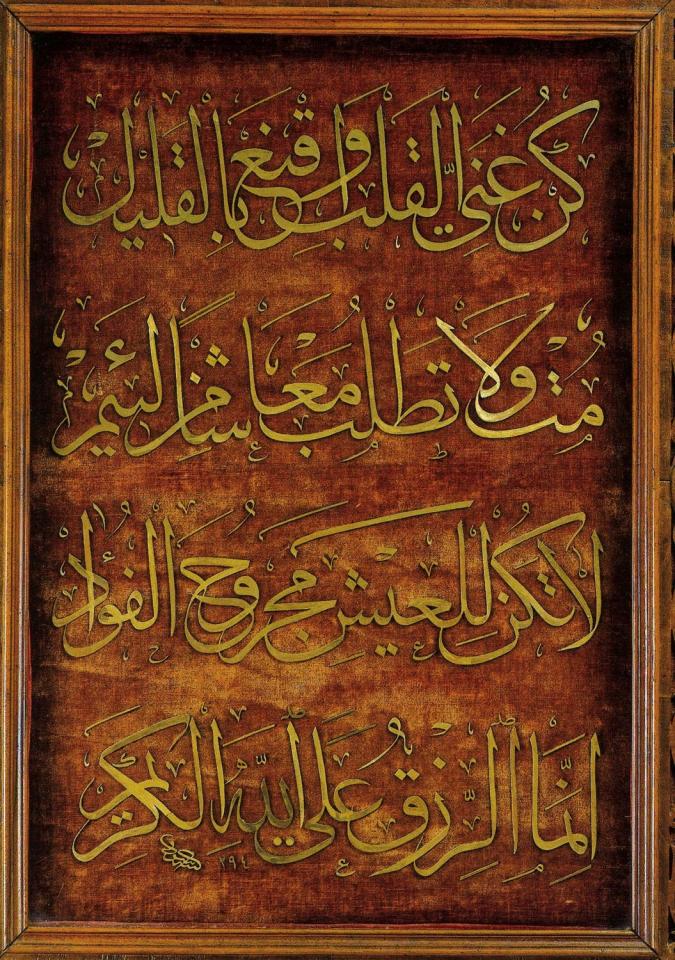 كُنْ غَنِيَّ الْقَلْبِ وَاقْنَعْ بِالْقَلِيلِ
مُتْ وَلَا تَطْلُبْ مَعَاشًا مِنْ لَئِيمٍ
لَا تَكُنْ لِلْعَيْشِ مَجْرُوحَ الْفُؤَادِ
إِنَّمَا الرِّزْقُ عَلَى اللهِ الْكَرِيمِ
٢٩٤